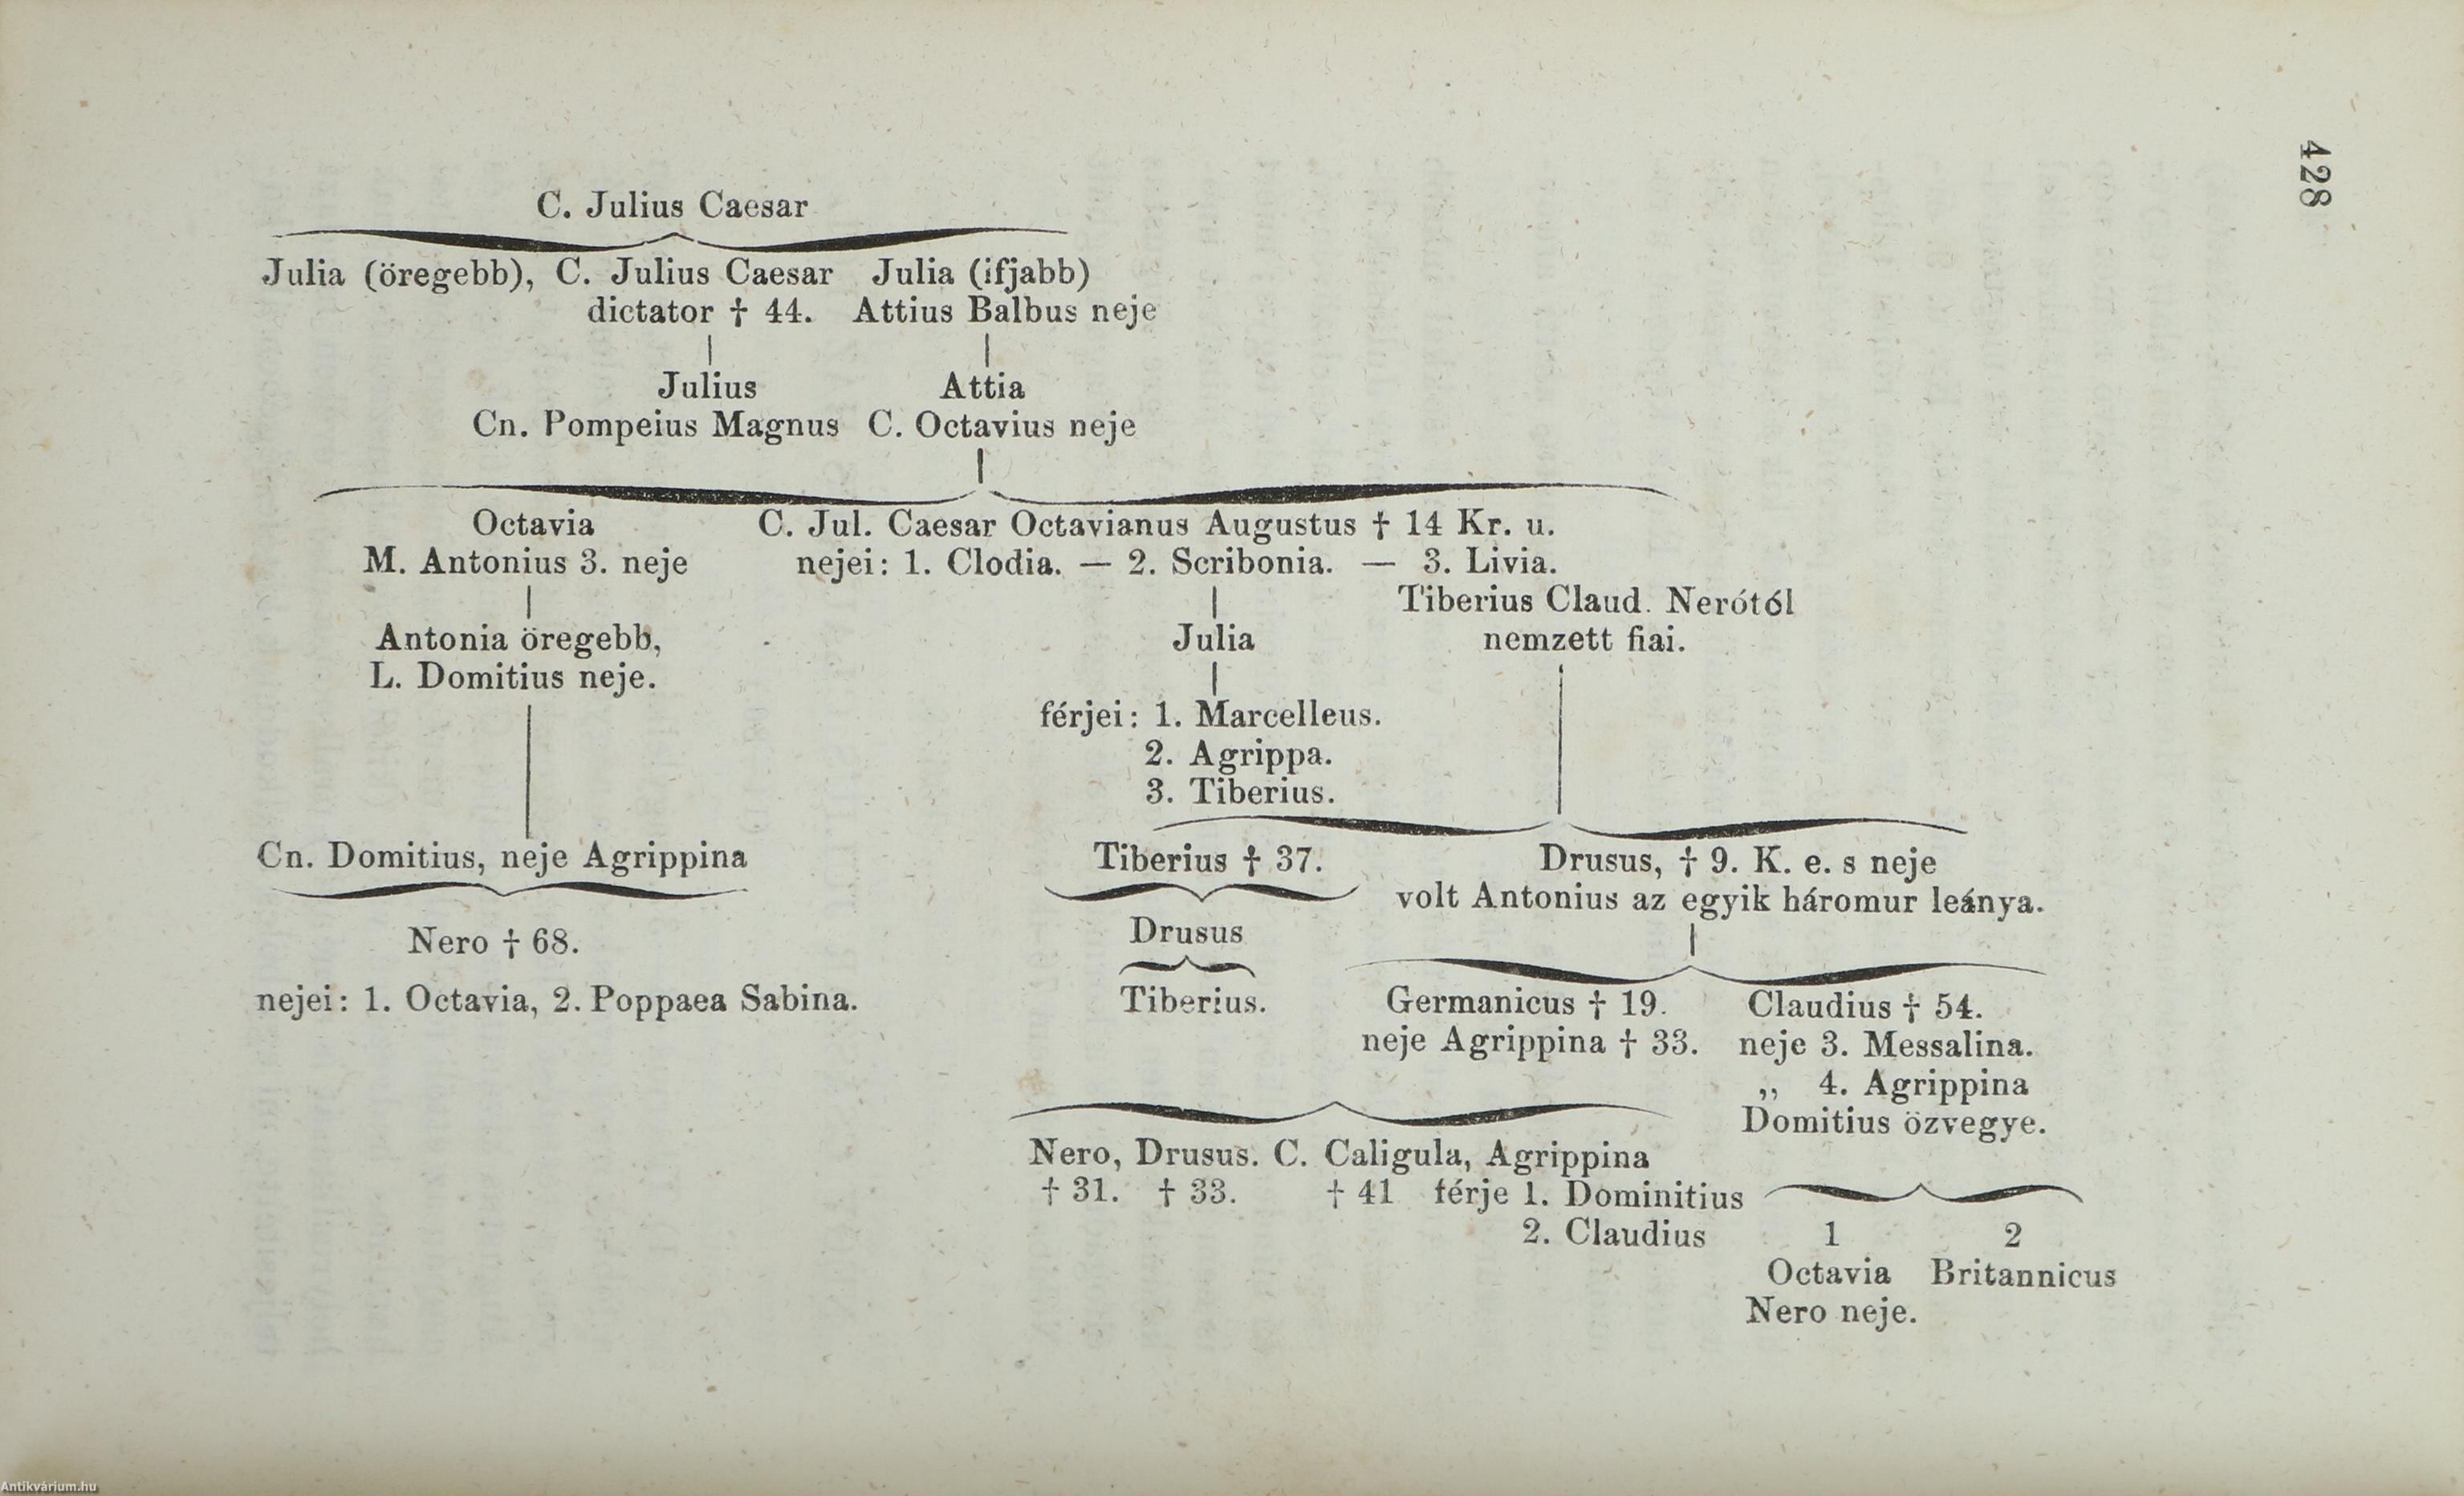 428
C. Julius Caesar
Julia (öregebb), C. Julius Caesar Julia (ifjabb)
dictator † 44. Attius Balbus neje
Julius Attia
Cn. Pompeius Magnus C. Octavius neje
Octavia C. Jul. Caesar Octavianus Augustus † 14 Kr. u.
M. Antonius 3. neje nejei: 1. Clodia. — 2. Scribonia. — 3. Livia.
Tiberius Claud. Nerótól
Antonia öregebb, Julia nemzett fiai.
L. Domitius neje.
férjei: 1. Marcelleus.
2. Agrippa.
3. Tiberius.
Cn. Domitius, neje Agrippina Tiberius † 37. Drusus, † 9. K. e. s neje
volt Antonius az egyik háromur leánya.
Nero † 68. Drusus
nejei: 1. Octavia, 2. Poppaea Sabina. Tiberius. Germanicus † 19. Claudius † 54.
neje Agrippina † 33. neje 3. Messalina.
„ 4. Agrippina
Domitius özvegye.
Nero, Drusus. C. Caligula, Agrippina
† 31. † 33. † 41 férje 1. Dominitius
2. Claudius 1 2
Octavia Britannicus
Nero neje.
Antikvárium.hu